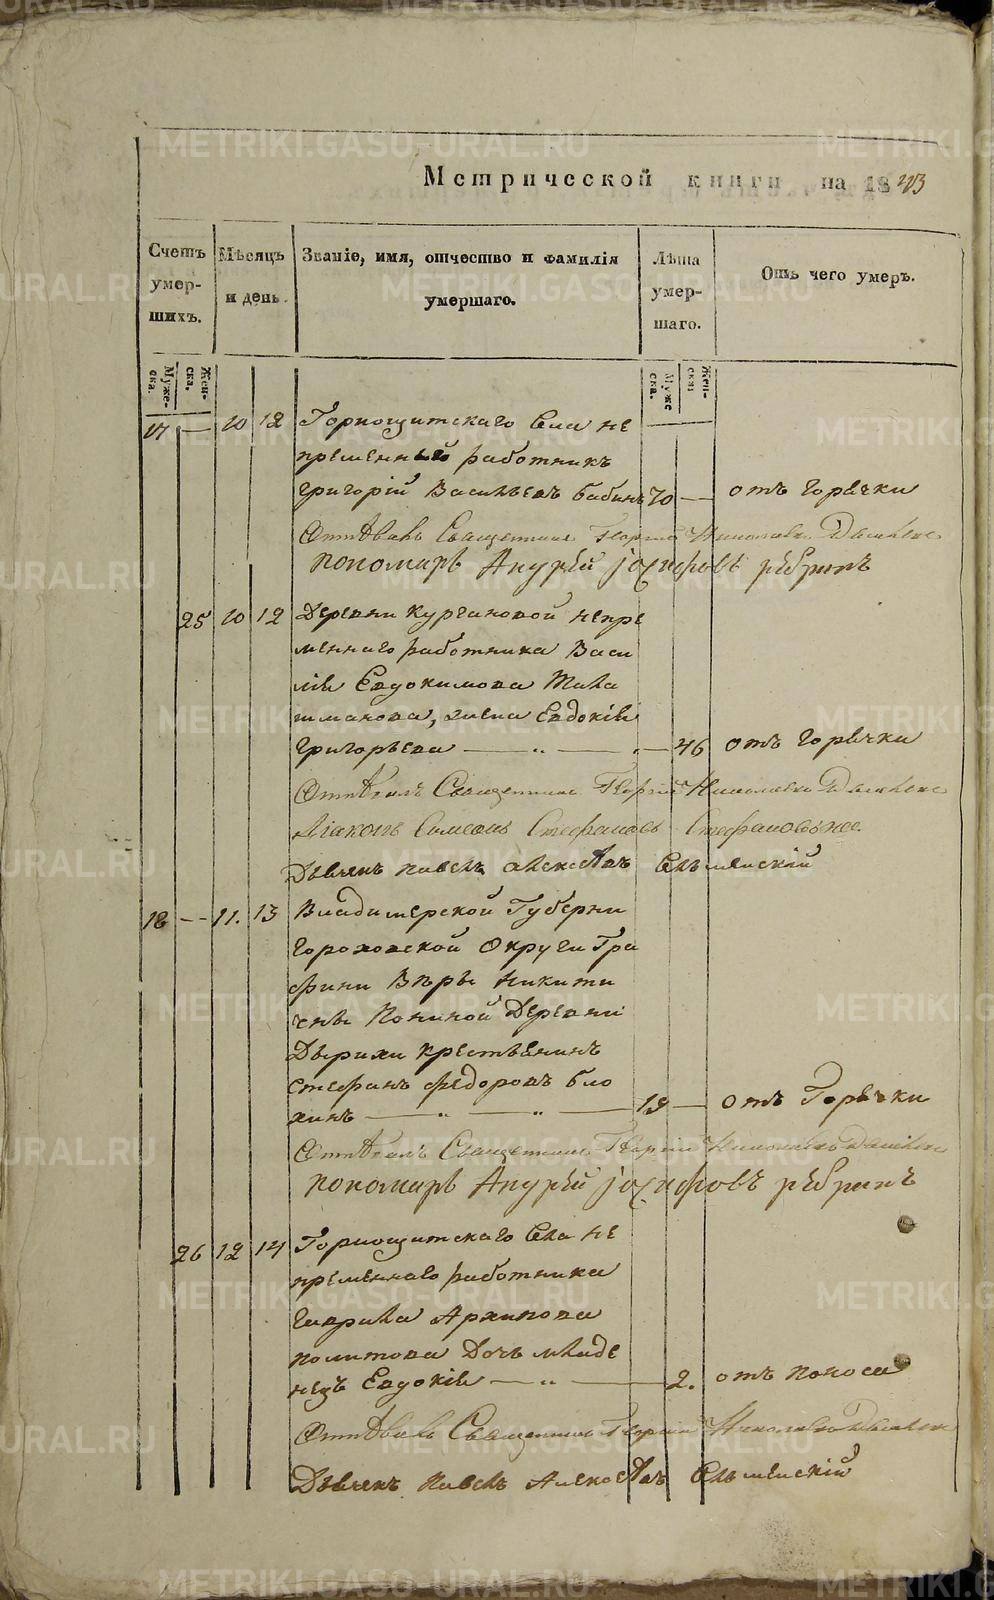 Метрической книги на 18
Счетъ умер-шихъ.
Мѣсяцъ и день.
Званіе, имя, отчество и фамилія умершаго.
Лѣта умер-шаго.
Отъ чего умеръ.
Муже-ска. Жен-ска. Муже ска. Жен-ска
17 — 10 12 Горнощитскаго Села не
пременный работникъ
григорій Васильевъ бабинъ 70 — отъ горячки
Священникъ Георгій Николаевъ
пономарь Андрей рѣбринъ
25 10 12 Деревни Кургановой непре
меннаго работника Васи
лія Евдокимова
шманова, жена Евдокія
григорьева — „ — „ — 46 отъ горячки
Священникъ Георгій Николаевъ
Діаконъ Симеонъ Стефановъ
Дьячекъ павелъ алексѣевъ
18 — 11. 13 Владимерской Губерни
гороховской Округи Гра
фини Вѣры Никити
чны Паниной Деревни
Дырихи крестьянинъ
стефанъ федоровъ бло
хинъ — „ — „ — 19 — отъ Горячки
Священникъ Георгій Николаевъ
пономарь Андрей рѣбринъ
26 12 14 Горнощитскаго Села не
пременнаго работника
гаврила Архипова
политова Дочь младе
нецъ Евдокія — „ — 2. отъ поноса
Священникъ Георгій Николаевъ
Дьячекъ павелъ Алексѣевъ
METRIKI.GASO-URAL.RU